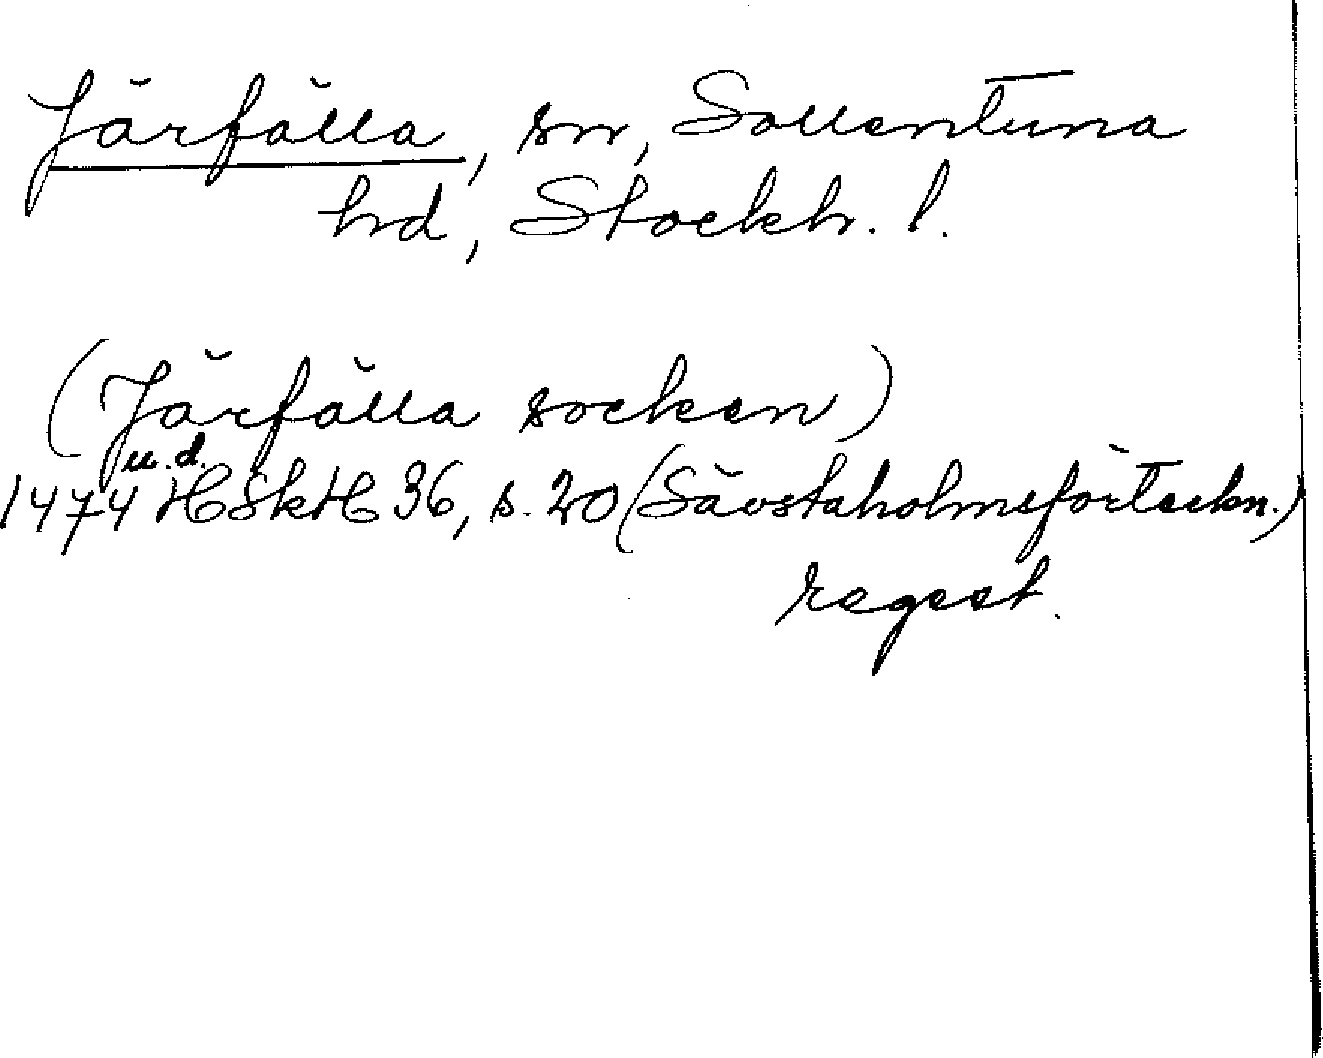 Järfälla, sn, Sollentuna
hd, Stockh. l.
(Järfälla socken)
u. d.
1474 HSkH 36, s. 20 (Sävstaholmsförteckn.)
regest.